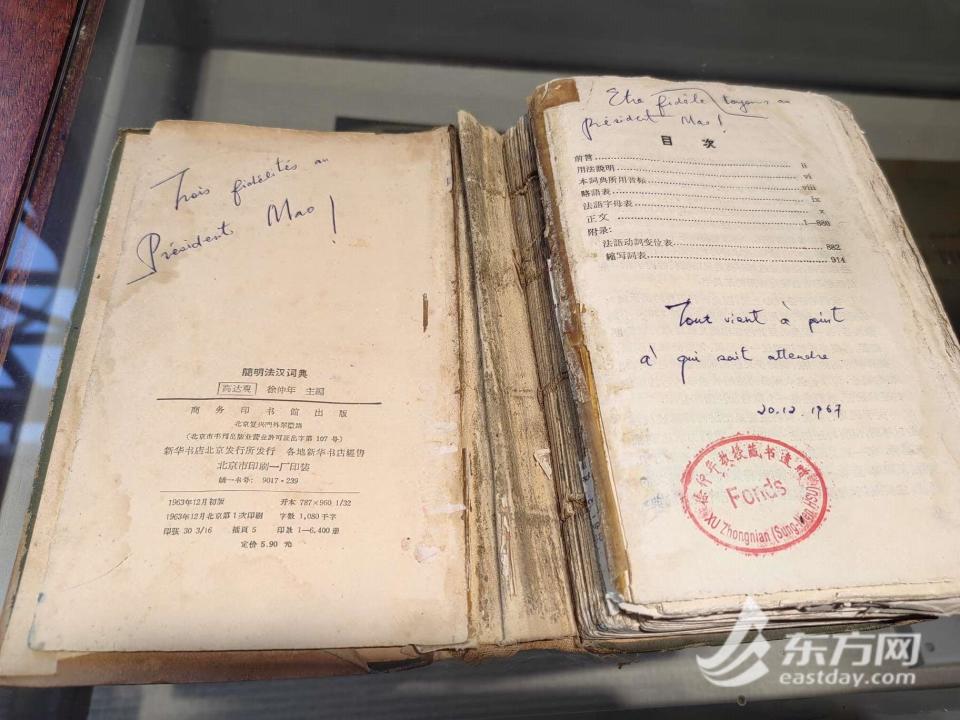 Trois fidélités au
Président Mao !
簡明法汉词典
高达观 徐仲年 主編
商务印书館出版
北京复兴門外翠微路
（北京市书刊出版业营业許可証出字第107号）
新华书店北京发行所发行 各地新华书店經售
北京市印刷一厂印装
統一书号：9017·239
1963年12月初版 开本 787×960 1/32
1963年12月北京第1次印刷 字数 1,080千字
印张 30 3/16 插頁 5 印数 1—6,400册
定价 5.90 元
Etre fidèle toujours au
président Mao !
目 次
前言 ii
用法說明 vi
本詞典所用音标 viii
略語表 ix
法語字母表 x
正文 1—880
附录：
法語动詞变位表 882
縮写詞表 914
Tout vient à point
à qui sait attendre.
20.12.1967
徐仲年教授藏书遗赠
Fonds
XU Zhongnian (Sung-Nien
东方网
eastday.com